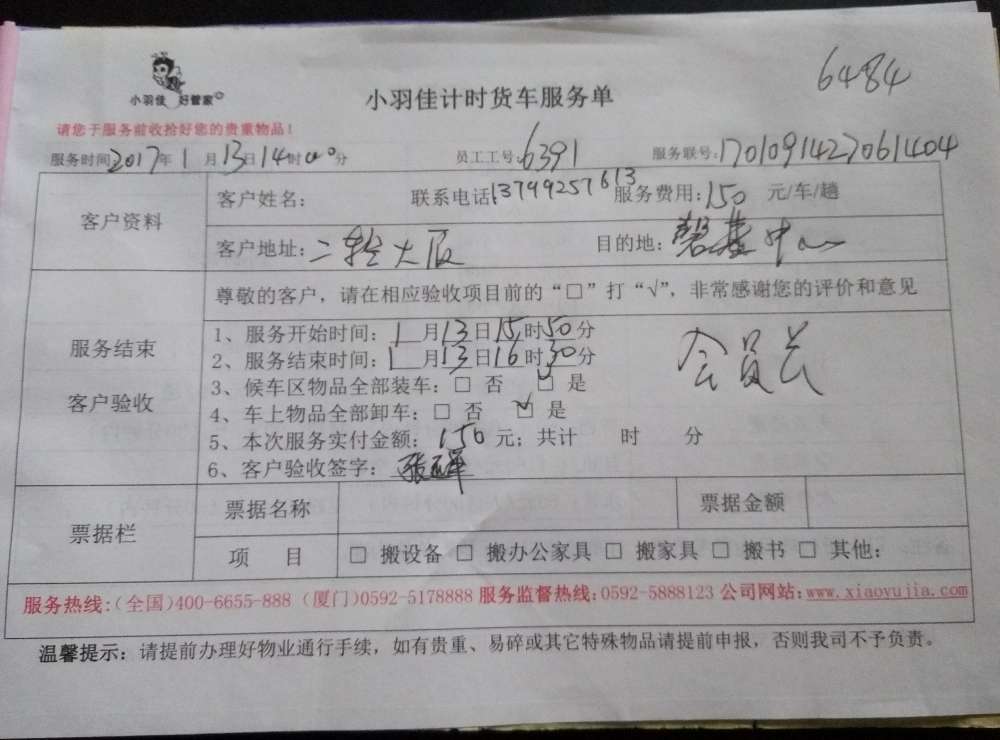 小羽佳 好管家
小羽佳计时货车服务单
6484
请您于服务前收拾好您的贵重物品！
服务时间:2017年1月13日14时00分 员工工号:6391 服务联号:1701091422061404
客户资料
客户姓名: 联系电话:13799257613 服务费用:150元/车/趟
客户地址:二轻大厦 目的地:磐基中心
尊敬的客户，请在相应验收项目前的“□”打“√”，非常感谢您的评价和意见
服务结束
客户验收
1、服务开始时间：1月13日15时50分
2、服务结束时间：1月13日16时30分
会员卡
3、候车区物品全部装车：□ 否 ☑ 是
4、车上物品全部卸车：□ 否 ☑ 是
5、本次服务实付金额：150元；共计 时 分
6、客户验收签字：
票据栏
票据名称 票据金额
项 目 □ 搬设备 □ 搬办公家具 □ 搬家具 □ 搬书 □ 其他:
服务热线:(全国)400-6655-888 (厦门)0592-5178888 服务监督热线:0592-5888123 公司网站:www.xiaoyujia.com
温馨提示：请提前办理好物业通行手续，如有贵重、易碎或其它特殊物品请提前申报，否则我司不予负责。